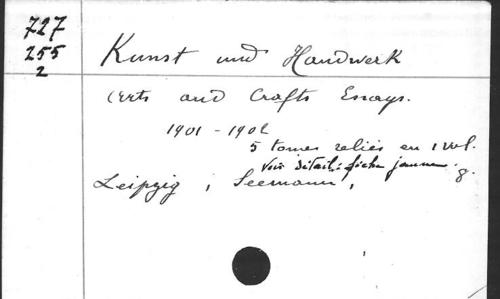 727
255
2
Kunst und Handwerk
Arts and Crafts Essays.
1901 - 1902
5 tomes reliés en 1 vol.
Voir détail: fiche jaune. 8.
Leipzig, Seemann,